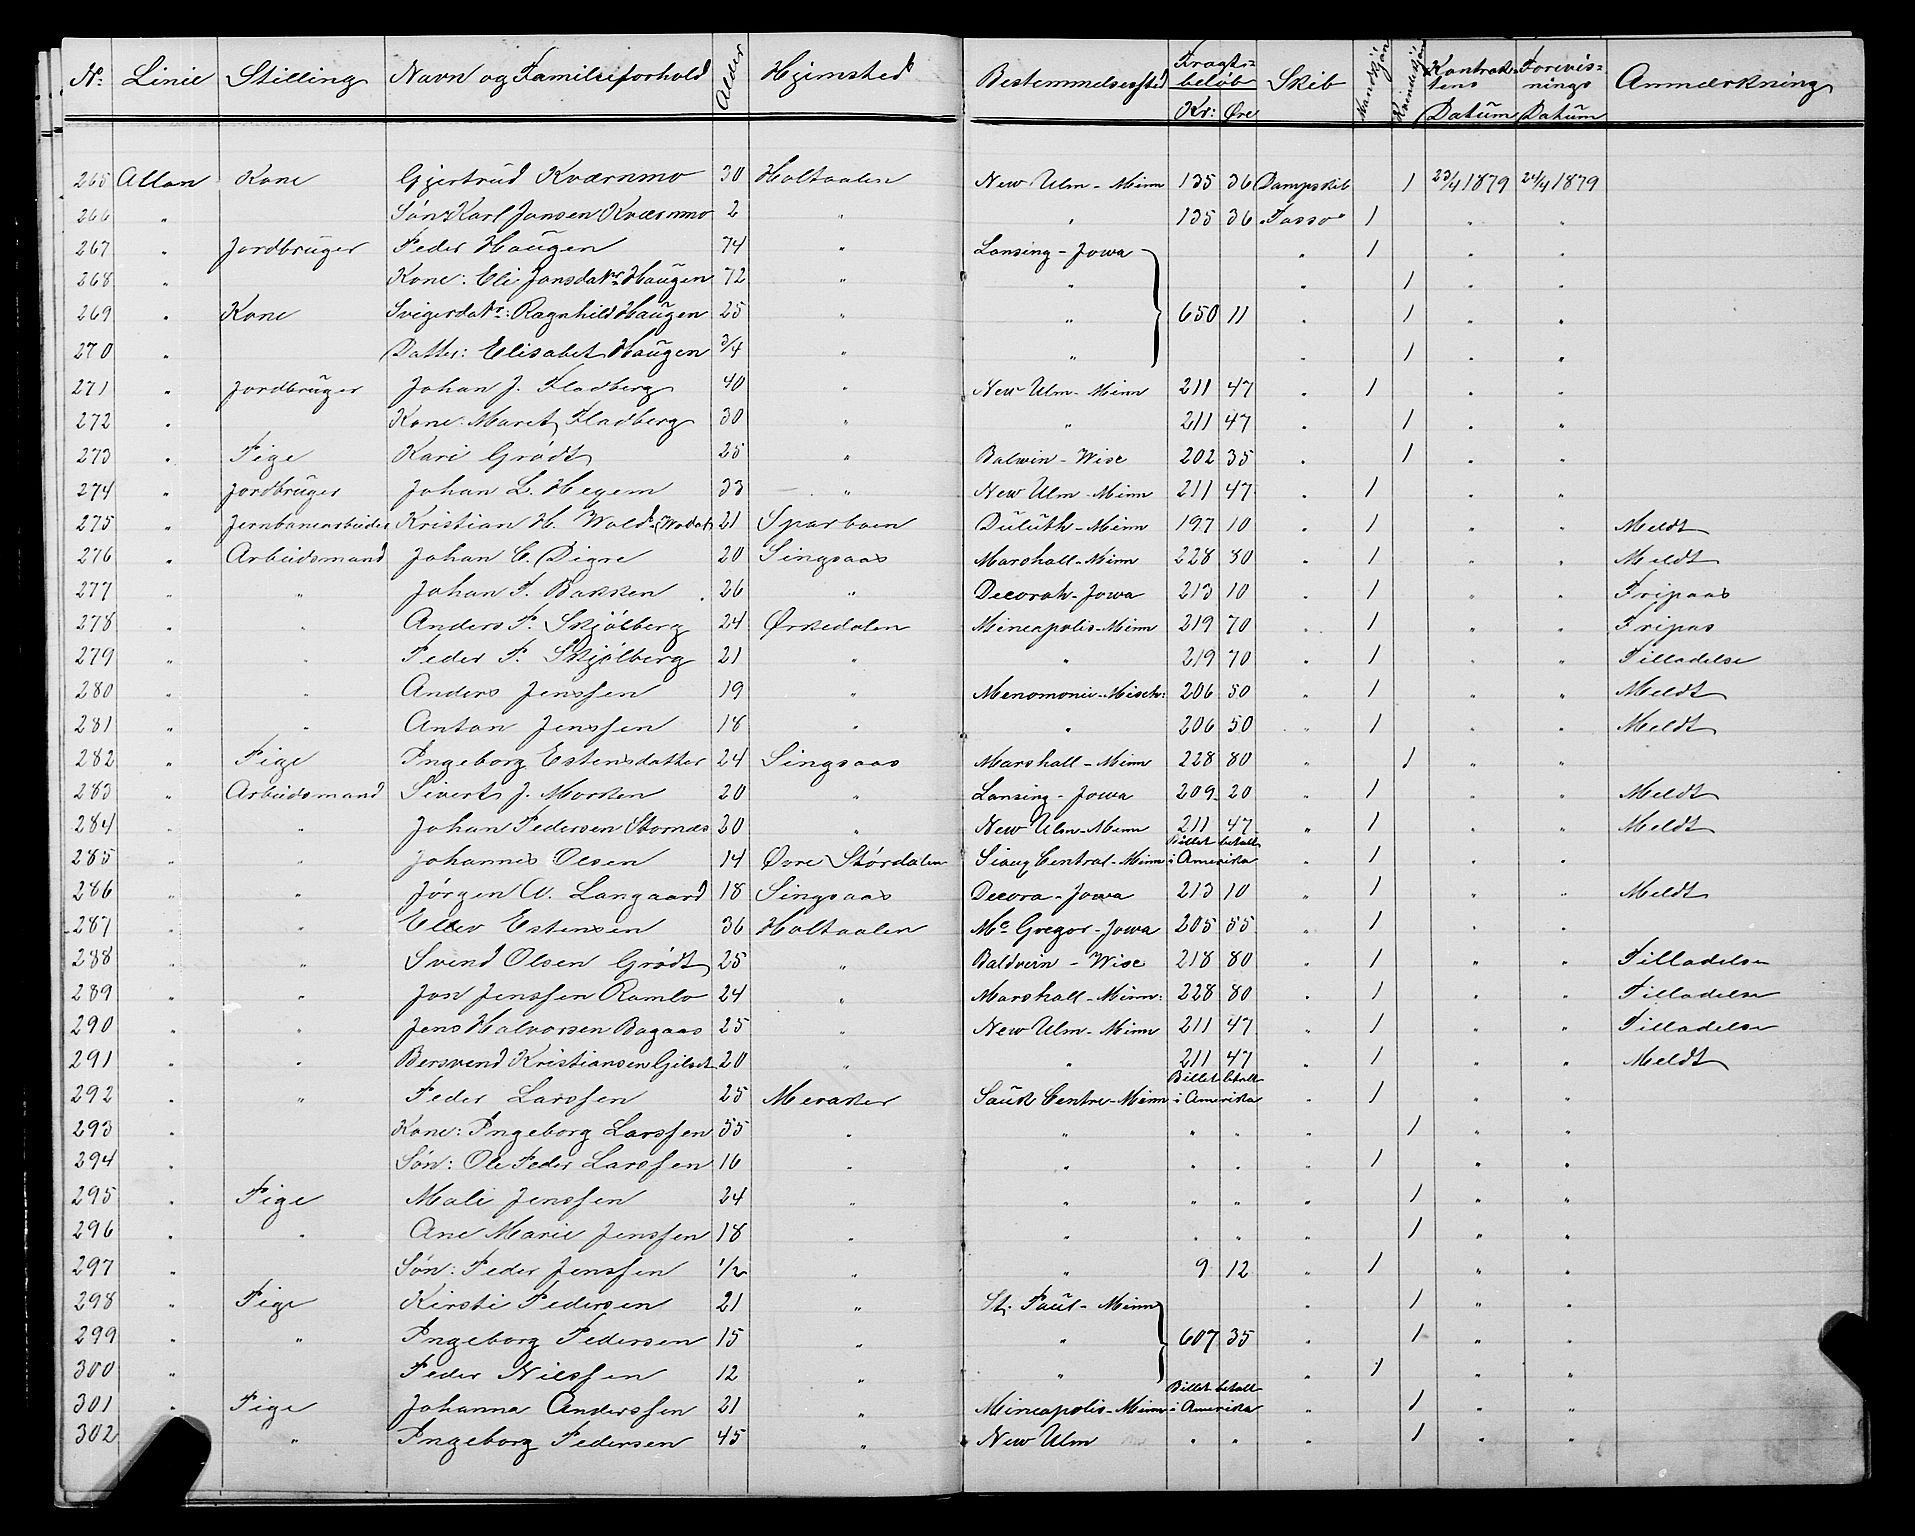 Nº Linie Stilling Navn og Familieforhold Alder Hjemsted Bestemmelsessted Fragtbeløb Kr: Øre Skib Mandkjøn Kvindekjøn Kontraktens Datum Forevisnings Datum Anmærkning
265 Allan Kone Gjertrud Kværnmo 30 Holtaalen New Ulm - Minn 135 36 Dampskib 1 23/4 1879 24/4 1879
266 " Søn: Karl Jonsen Kværnmo 2 " " 135 36 "Tasso" 1 " "
267 " Jordbruger Peder Haugen 74 " Lansing - Jowa " 1 " "
268 " Kone: Eli Jonsdatr Haugen 72 " " " 1 " "
269 " Kone Svigerdatr: Ragnhild Haugen 25 " " 650 11 " 1 " "
270 " Datter: Elisabet Haugen 3/4 " " " 1 " "
271 " Jordbruger Johan J. Fladberg 40 " New Ulm - Minn 211 47 " 1 " "
272 " Kone: Maret Fladberg 30 " " 211 47 " 1 " "
273 " Pige Kari Grødt 25 " Balwin - Wisc 202 35 " 1 " "
274 " Jordbruger Johan L. Hegem 33 " New Ulm - Minn 211 47 " 1 " "
275 " Jernbanearbeider Kristian H. Wold 21 Sparboen Duluth - Minn 197 10 " 1 " " Meldt
276 " Arbeidsmand Johan C. Digre 20 Singsaas Marshall - Minn 228 80 " 1 " " Meldt
277 " " Johan P. Bakken 26 " Decorah - Jowa 213 10 " 1 " " Fripaas
278 " " Anders P. Skjølberg 24 Ørkedalen Mineapolis - Minn 219 70 " 1 " " Fripas
279 " " Peder P. Skjølberg 21 " " 219 70 " 1 " " Tilladelse
280 " " Anders Jenssen 19 " Menomonie - Misch: 206 50 " 1 " " Meldt
281 " " Anton Jenssen 18 " " 206 50 " 1 " " Meldt
282 " Pige Ingeborg Estensdatter 24 Singsaas Marshall - Minn 228 80 " 1 " "
283 " Arbeidsmand Sivert J. Morken 20 " Lansing - Jowa 209 20 " 1 " " Meldt
284 " " Johan Pedersen Stornæs 20 " New Ulm - Minn 211 47 " 1 " " Meldt
285 " " Johannes Olsen 14 Øvre Størdalen Central - Minn Billet betalt i Amerika " 1 " "
286 " " Jørgen A. Langaard 18 Singsaas Decora - Jowa 213 10 " 1 " " Meldt
287 " " Ellev Estensen 36 Holtaalen Mc Gregor - Jowa 205 55 " 1 " "
288 " " Svend Olsen Grødt 25 " Baldvein - Wisc 218 80 " 1 " " Tilladelse
289 " " Jon Jenssen Ramlo 24 " Marshall - Minn: 228 80 " 1 " " Tilladelse
290 " " Jens Halvorsen Bagaas 25 " New Ulm - Minn 211 47 " 1 " " Tilladelse
291 " " Bersvend Kristiansen Gilset 20 " " 211 47 " 1 " " Meldt
292 " " Peder Larssen 25 Meraker Sauk Centre - Minn Billet betalt i Amerika " 1 " "
293 " Kone: Ingeborg Larssen 55 " " " " " 1 " "
294 " Søn: Ole Peder Larssen 16 " " " " " 1 " "
295 " Pige Mali Jenssen 24 " " " " " 1 " "
296 " " Ane Marie Jenssen 18 " " " " " 1 " "
297 " Søn: Peder Jenssen 1/2 " " 9 12 " 1 " "
298 " Pige Kirsti Pedersen 21 " St. Paul - Minn " 1 " "
299 " " Ingeborg Pedersen 15 " " 607 35 " 1 " "
300 " Peder Nilssen 12 " " " 1 " "
301 " Pige Johanna Anderssen 21 " Mineapolis - Minn Billet betalt i Amerika " 1 " "
302 " " Ingeborg Pedersen 45 " New Ulm " " " 1 " "